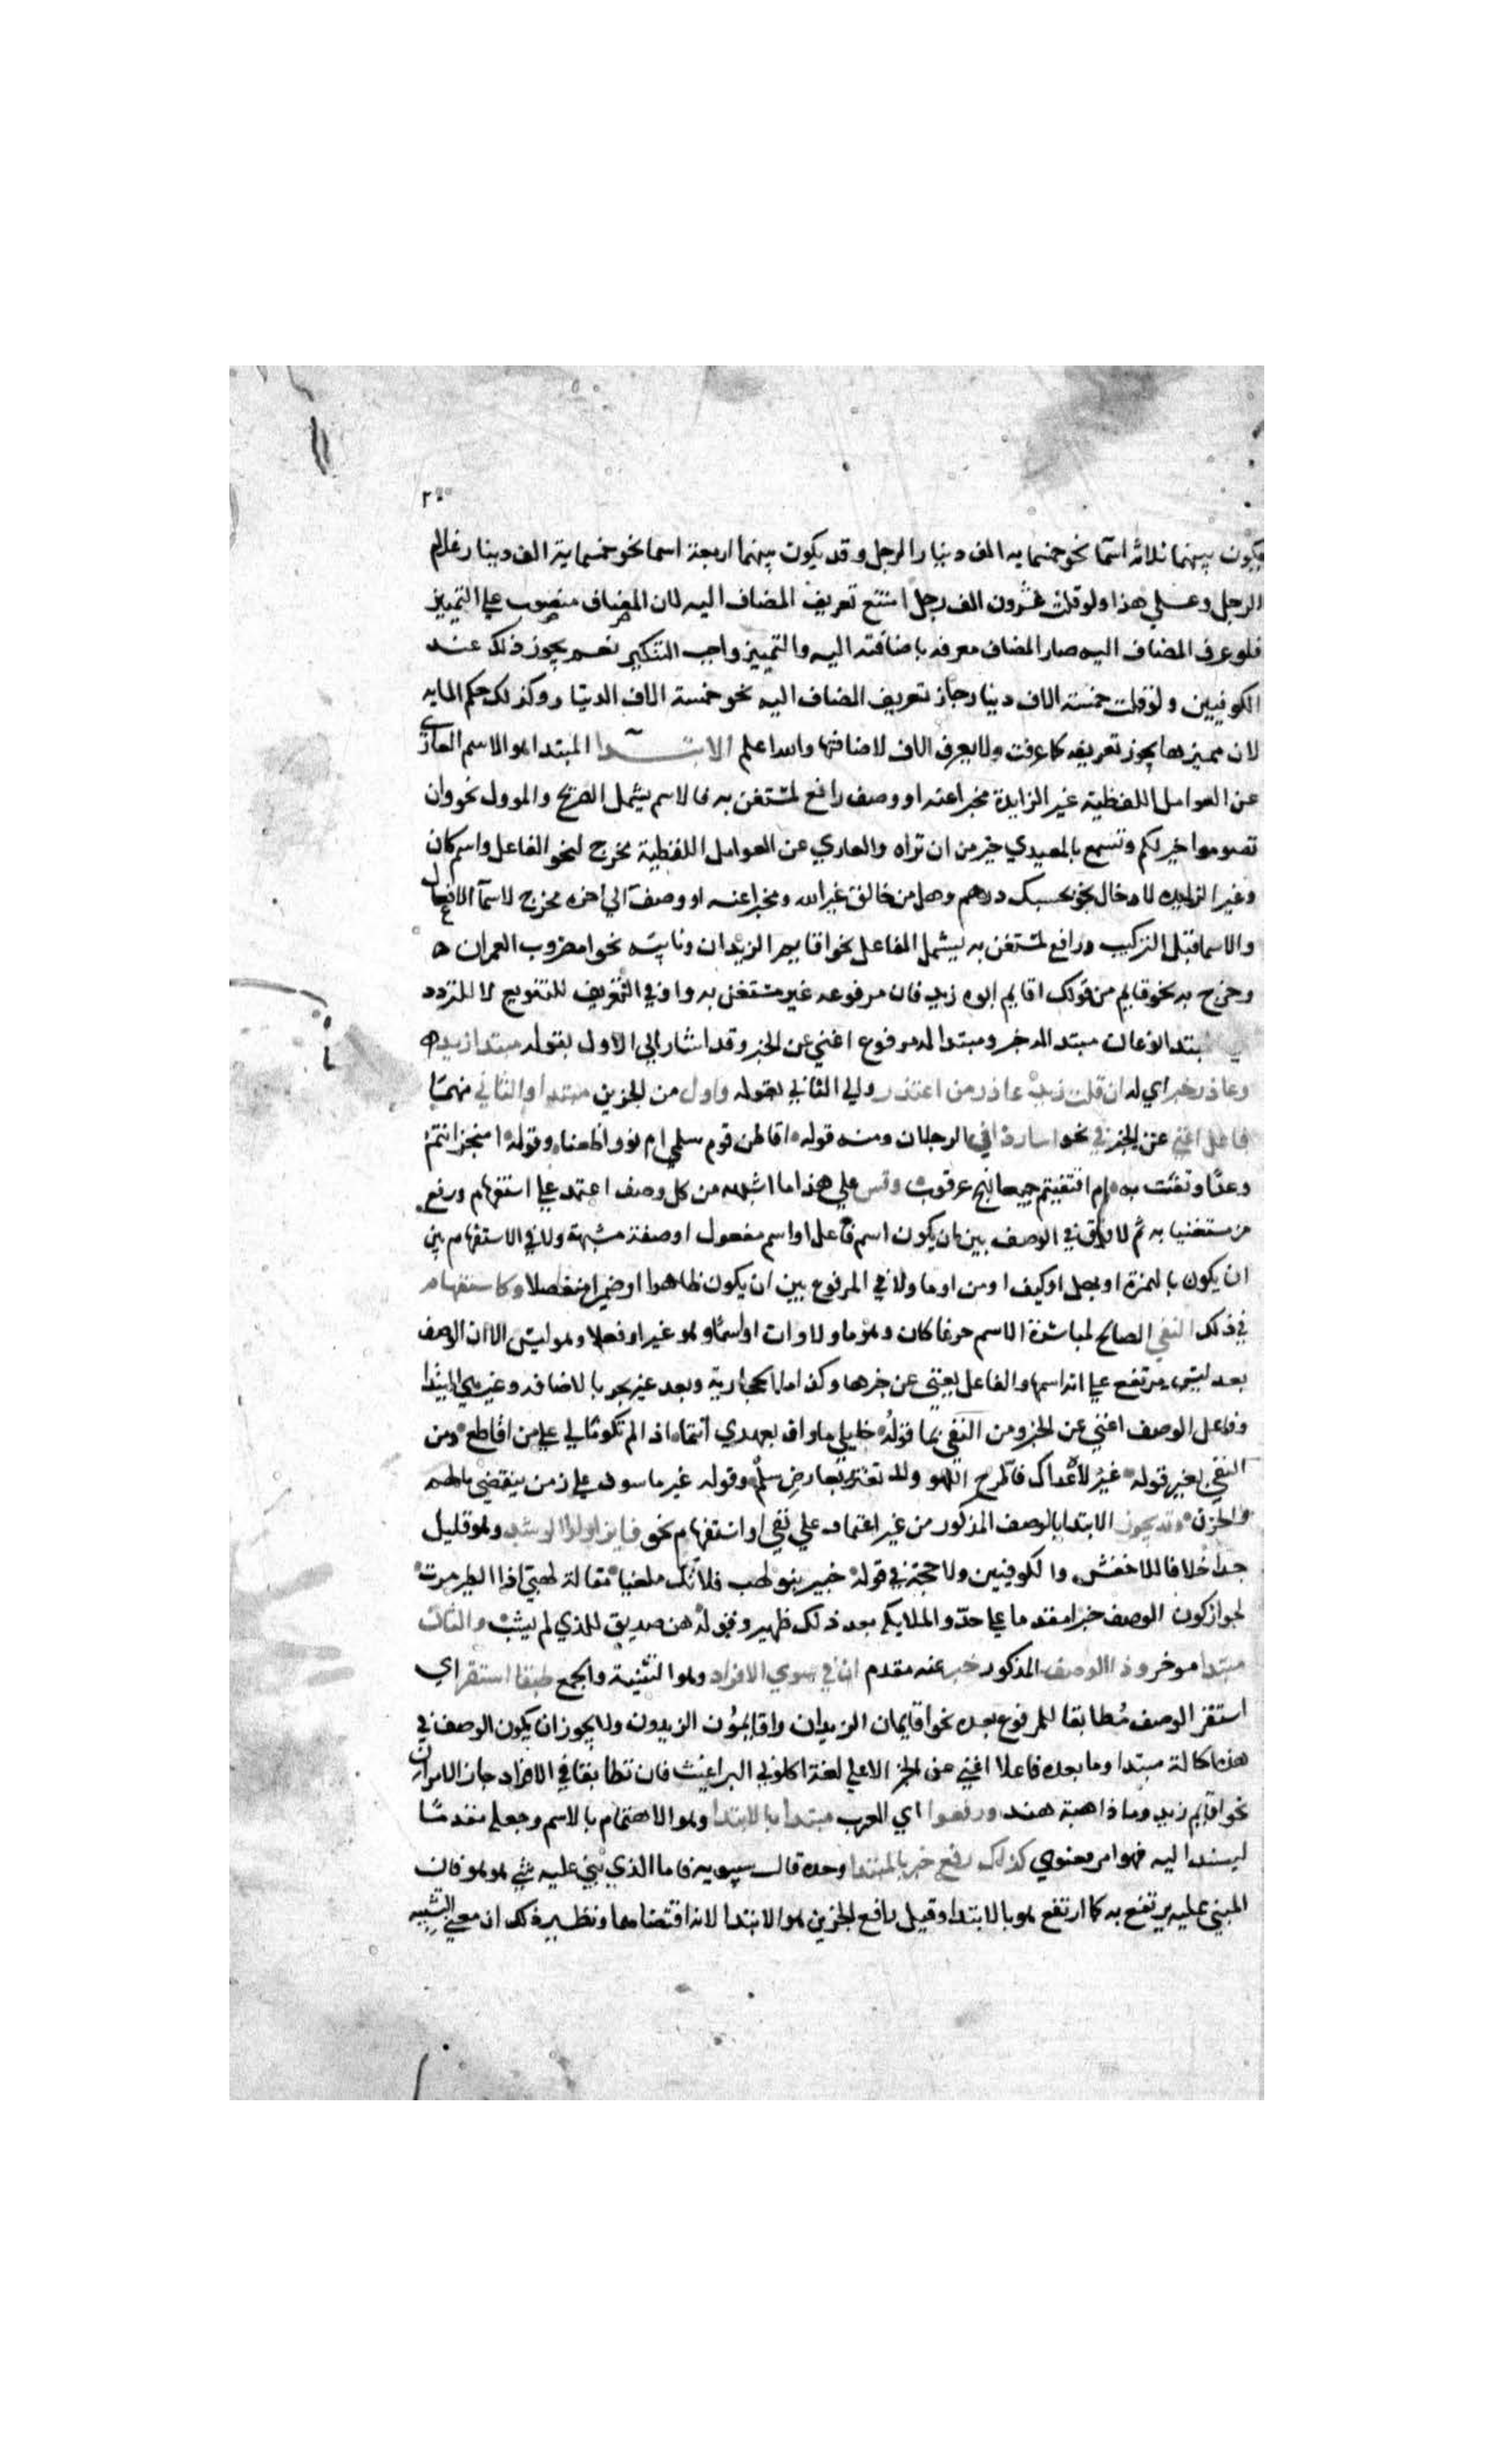 ٢٠
يكون بينهما ثلاثه اسما نحو خمسمايه الف دينار الرجل وقد يكون بينهما اربعة اسما نحو خمسماية الف دينار غلام
الرجل وعلي هذا ولو قلت عشرون الف رجل امتنع تعريف المضاف اليه لان المضاف منصوب علي التمييز
فلو عرف المضاف اليه صار المضاف معرفه باضافته اليه والتمييز واجب التنكير نعم يجوز ذلك عند
الكوفيين ولو قلت خمسة الاف دينار جاز تعريف المضاف اليه نحو خمسة الاف الدينار وكذلك حكم المايه
لان مميزها يجوز تعريفه كما عرفت ولا يعرف الاف لاضافتها والله اعلم الابتدا المبتدا هو الاسم العاري
عن العوامل اللفظية غير الزايدة مخبرا عنه او وصف رافع لمستغن به فالاسم يشمل الصريح والموول نحو وان
تصوموا خير لكم وتسمع بالمعيدي خير من ان تراه والعاري عن العوامل اللفظية مخرج لنحو الفاعل واسم كان
وغير الزايده لادخال نحو بحسبك درهم وهل من خالق غير الله ومخبرا عنه او وصف الي اخره مخرج لاسما الافعال
والاسما قبل التركيب ورافع لمستغن به يشمل الفاعل نحو اقايم الزيدان ونايبه نحو امضروب العمران
وخرج به نحو قايم من قولك اقايم ابوه زيد فان مرفوعه غير مستغن به واو في التعريف للتنويع لا للتردد
المبتدا نوعان مبتدا له خبر ومبتدا له مرفوع اغني عن الخبر وقد اشار الي الاول بقوله مبتدا زيد
وعاذر خبر اي له ان قلت زيد عاذر من اعتذر والي الثاني بقوله واول من الجزين مبتدا والثاني منهما
فاعل اغني عن الخبر في نحو اسار ذان الرجلان ومنه قوله اقاطن قوم سلمي ام نووا ظعنا وقوله امنجز انتم
وعدًا وثقت به ام اقتفيتم جميعا نهج عرقوب وقس علي هذا ما اشبهه من كل وصف اعتمد علي استفهام ورفع
مستغنيا به ثم لا فرق في الوصف بين ان يكون اسم فاعل او اسم مفعول او صفة مشبهة ولا في الاستفهام بين
ان يكون بالهمزة او بهل او كيف او من او ما ولا في المرفوع بين ان يكون ظاهرا او ضميرا منفصلا وكاستفهام
في ذلك النفي الصالح لمباشرة الاسم حرفا كان وهو ما ولا وان او اسمًا وهو غير او فعلا وهو ليس الا ان الوصف
بعد ليس يرتفع علي انه اسمها والفاعل يغني عن خبرها وكذا ما الحجازية وبعد غير يجر بالاضافه وغير هي المبتدا
وفاعل الوصف اغني عن الخبر ومن النفي بما قوله خليلي ما واف بعهدي انتما اذا لم تكونا لي علي من اقاطع ومن
النفي بغير قوله غير لاه عداك فاطرح اللهو ولا تغترر بعارض سلم وقوله غير ماسوف علي زمن ينقضي بالهم
والحزن وقد يجوز الابتدا بالوصف المذكور من غير اعتماد علي نفي او استفهام نحو فايز اولوا الرشد وهو قليل
جدا خلافا للاخفش والكوفيين ولا حجة في قوله خبير بنو لهب فلا تك ملغيا مقالة لهبي اذا الطير مرت
لجواز كون الوصف خبرا مقدما علي حد والملايكه بعد ذلك ظهير وقوله هن صديق للذي لم يشب والثان
مبتدا موخر وذا الوصف المذكور خبر عنه مقدم ان في سوي الافراد وهو التثنية والجمع طبقا استقر اي
استقر الوصف مُطابقا للمرفوع بعده نحو اقايمان الزيدان واقايمون الزيدون ولا يجوز ان يكون الوصف في
هذه الحالة مبتدا وما بعده فاعلا اغني عن الخبر الا علي لغة اكلوني البراغيث فان تطابقا في الافراد جاز الامران
نحو اقايم زيد وما ذاهبة هند ورفعوا اي العرب مبتدا بالابتدا وهو الاهتمام بالاسم وجعله مقدمًا
ليسند اليه فهو امر معنوي كذلك رفع خبر بالمبتدا وحده قال سيبويه فاما الذي بني عليه شي هو هو فان
المبني عليه يرتفع به كما ارتفع هو بالابتدا وقيل رافع الجزين هو الابتدا لانه اقتضاهما ونظير ذلك ان معني التشبيه